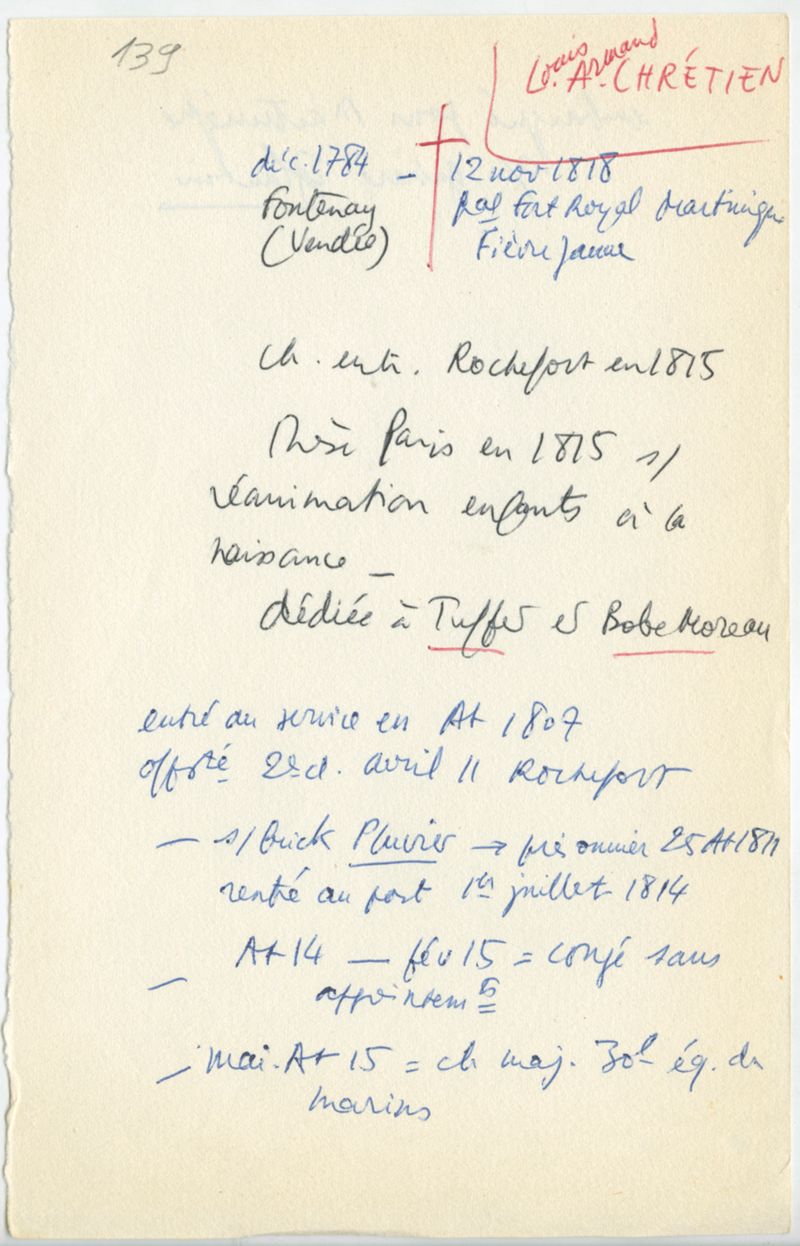 139
Louis Armand
L. A. CHRÉTIEN
déc. 1784 – 12 nov 1818
Fontenay
(Vendée)
hal Fort Royal Martinique
Fièvre jaune
ch. entr. Rochefort en 1815
Thèse Paris en 1815 s/
réanimation enfants à la
naissance –
dédiée à Tuffet et Bobe Moreau
entré au service en At 1807
offsté 2e cl. avril 11 Rochefort
– s/ brick Pluvier → prisonnier 25 At 1811
rentré au port 1er juillet 1814
– At 14 – fév 15 = congé sans
appointem ts
– mai. At 15 = ch maj. 30e éq. de
marins